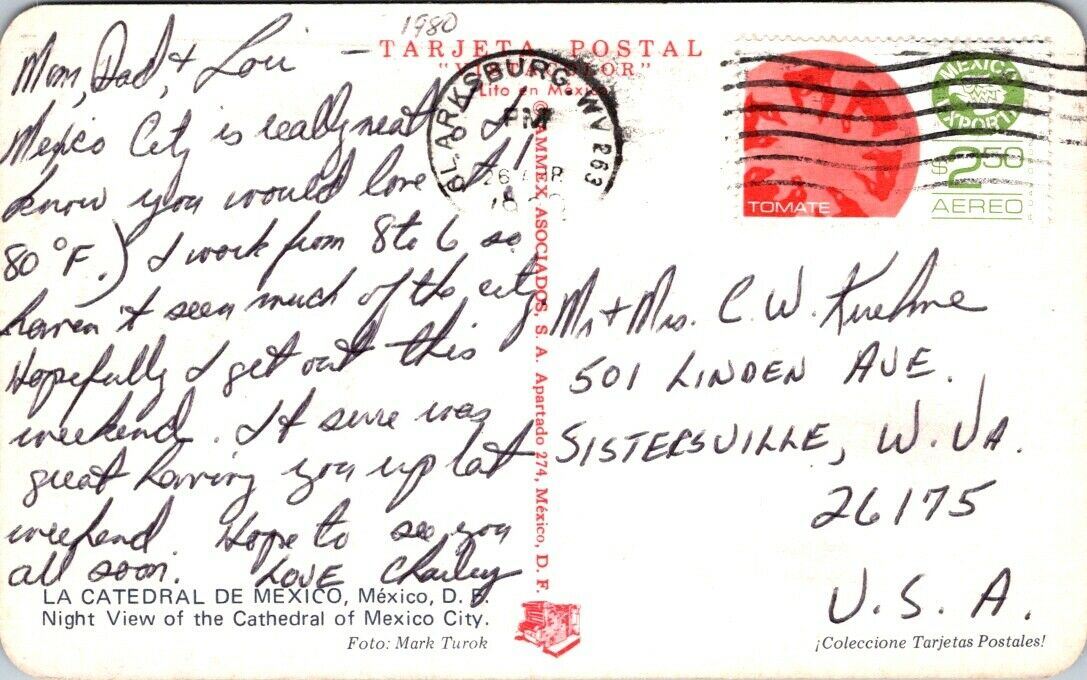 1980
TARJETA POSTAL
"VISTACOLOR"
Lito en México
Mom, Dad, + Lori
Mexico City is really neat (I
know you would love it!
80°F.) I work from 8 to 6 so
haven't seen much of the city
Hopefully I get out this
weekend. It sure was
great having you up last
weekend. Hope to see you
all soon. LOVE Charley
LA CATEDRAL DE MEXICO, México, D. F.
Night View of the Cathedral of Mexico City.
Foto: Mark Turok
AMMEX ASOCIADOS, S. A. Apartado 274, México, D. F.
CLARKSBURG WV 263
PM
26
MEXICO
EXPORTA
$2.50
AEREO
TOMATE
Mr + Mrs. C. W. Kuehne
501 LINDEN AVE.
SISTERSVILLE, W. VA.
26175
U. S. A.
¡Coleccione Tarjetas Postales!